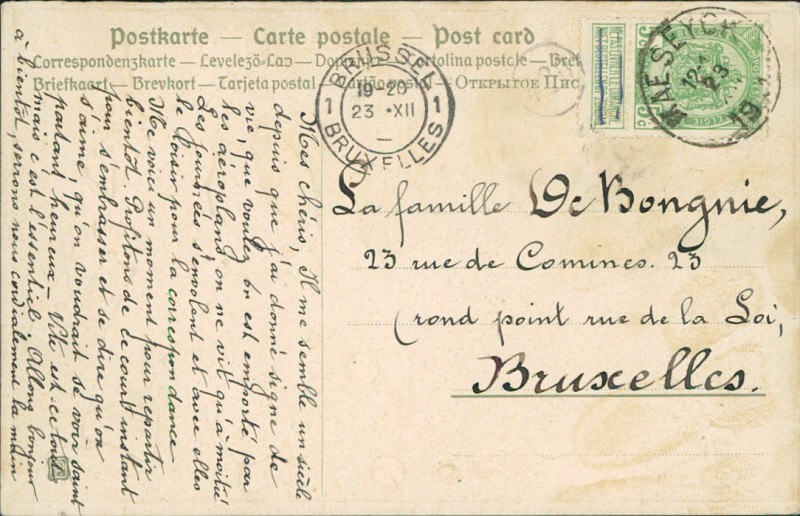 Postkarte — Carte postale — Post card
Correspondenzkarte — Levelező-Lap — Dopis — Cartolina postale — Bref
Briefkaart — Brevkort — Tarjeta postal — Cartão postal — Открытое Пис
BRUSSEL
19-20
1 23 XII 1
BRUXELLES
MAESEYCK
12-
23
XII
19
BELGIE
5c
Mes chéris, Il me semble un siècle
depuis que j'ai donné signe de
vie, que voulez on est emporté par
les aéroplans, on ne vit qu'à moitié
Les journées s'envolent et avec elles
le loisir pour la correspondance
Me voici un moment pour repartir
bientôt. Profitons de ce court instant
pour s'embrasser et se dire qu'on
s'aime, qu'on voudrait se voir
partant heureux — Vite est-ce tout
mais c'est l'essentiel. Allons bonjour
à bientôt, serrons nous cordialement la main
La famille De Bongnie,
23 rue de Comines. 23
(rond point rue de la Loi,
Bruxelles.